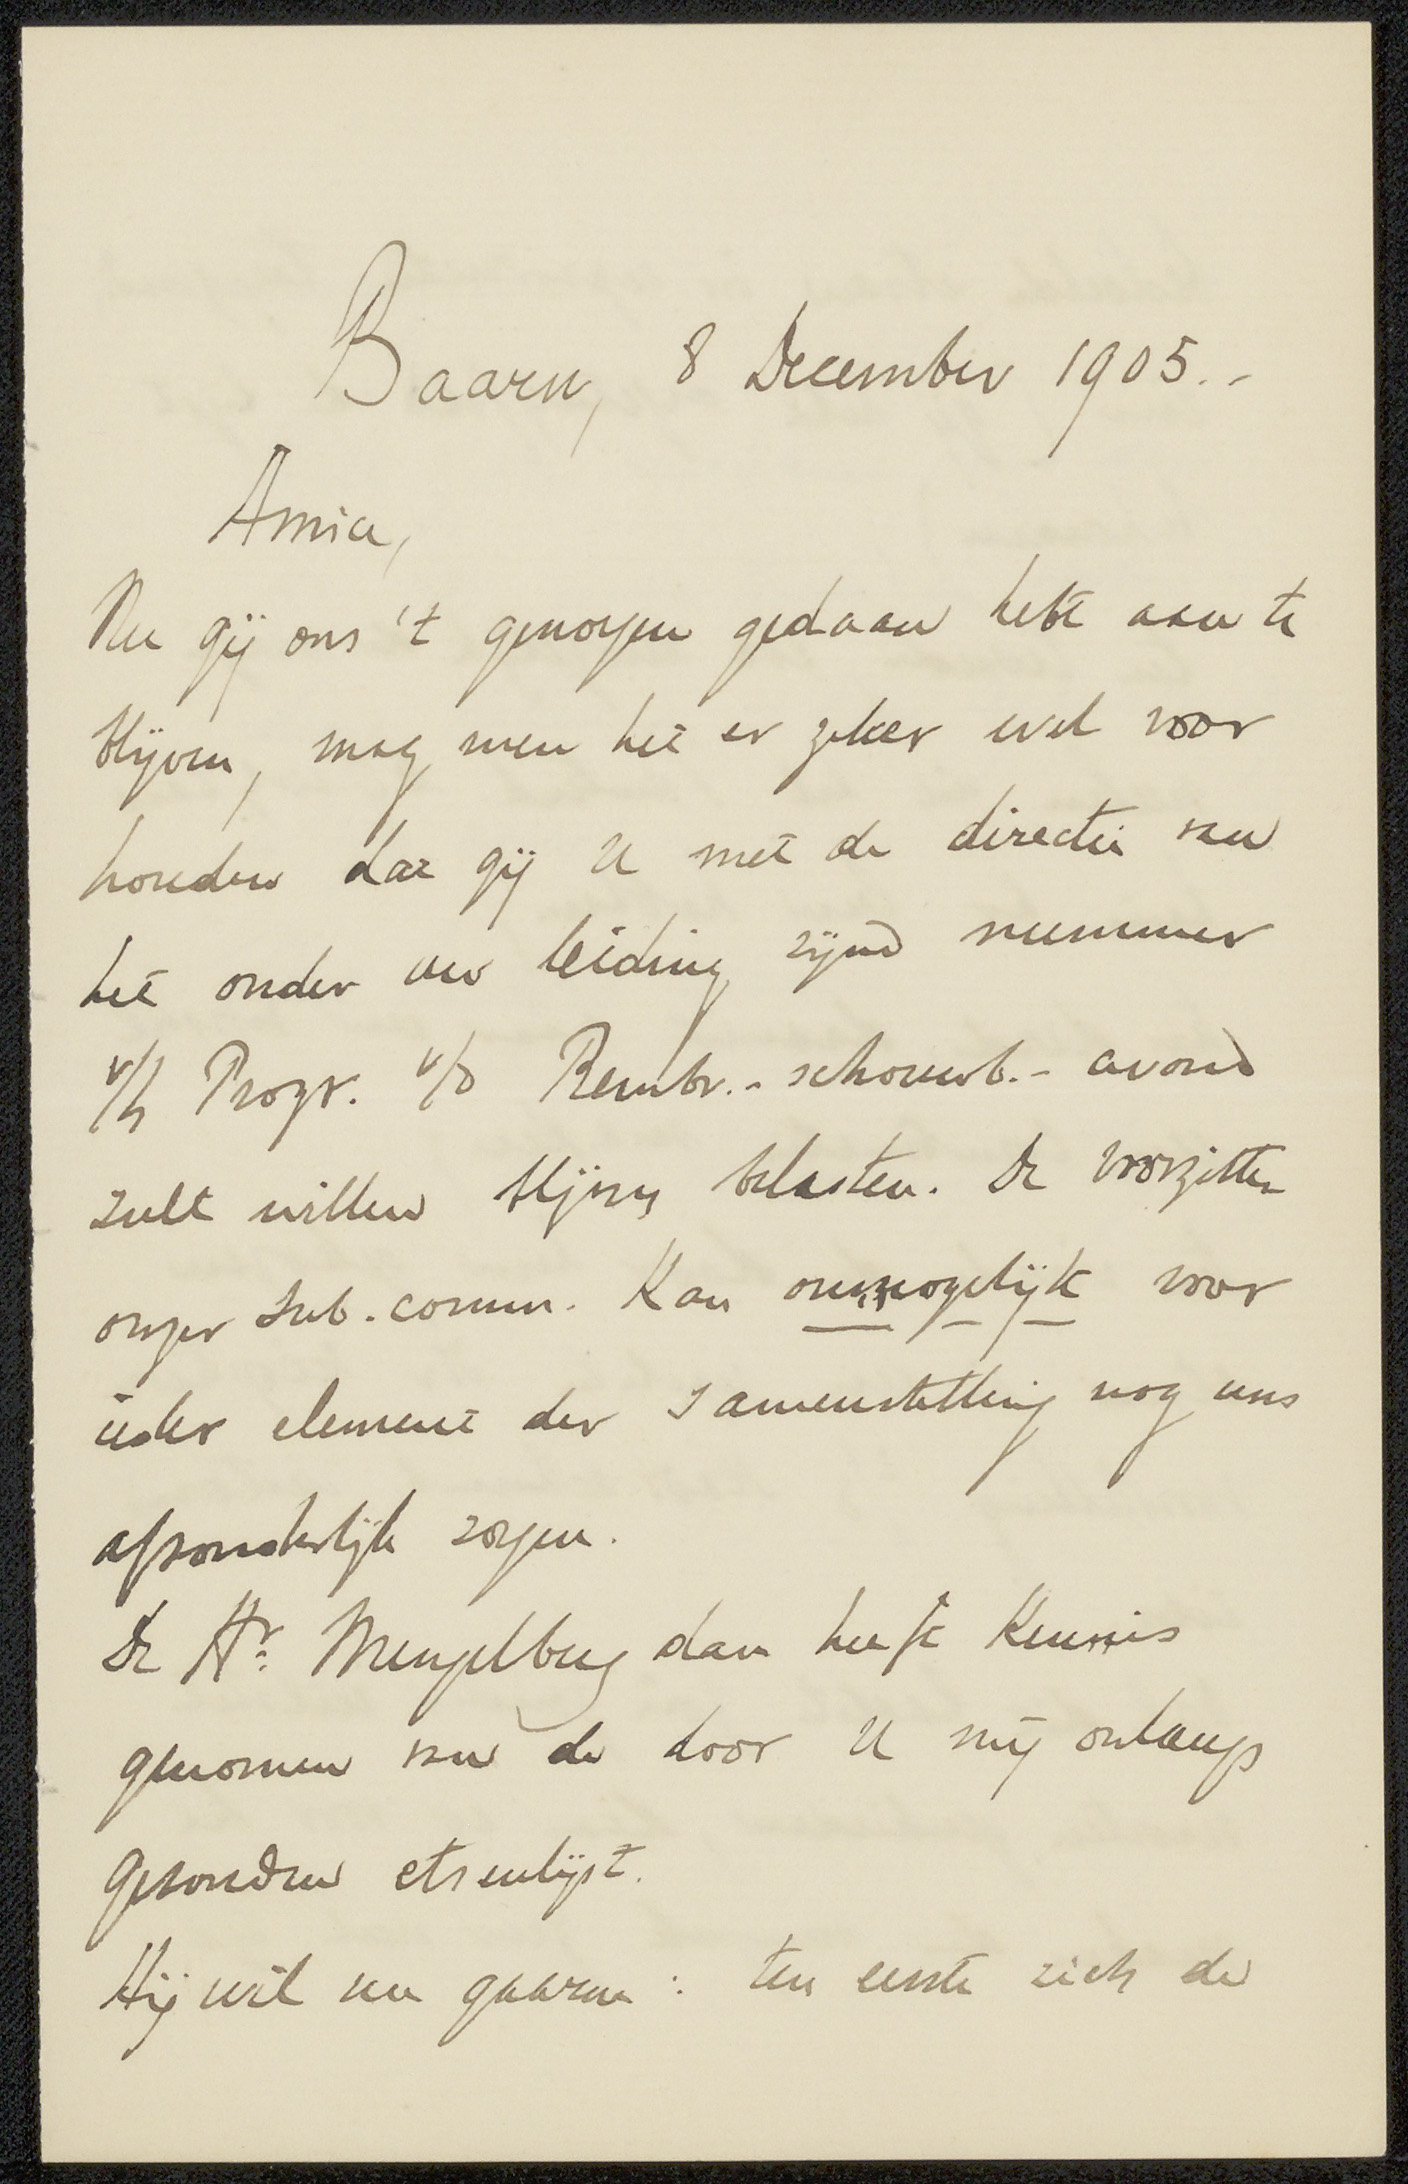 Baarn, 8 December 1905.-
Amice,
Nu gij ons 't genoegen gedaan hebt aan te
blijven, mag men het er zeker wel voor
houden dat gij U met de directie van
het onder uw leiding zijnd nummer
v/h Progr. v/d Rembr.- schouwb.- avond
zult willen blijven belasten. De voorzitter
onzer Sub.comm. kan onmogelijk voor
ieder element der samenstelling nog eens
afzonderlijk zorgen.
De Hr. Mengelberg dan heeft kennis
genomen van de door U mij onlangs
gezonden etsenlijst.
Hij wil nu gaarne : ten eerste zich de